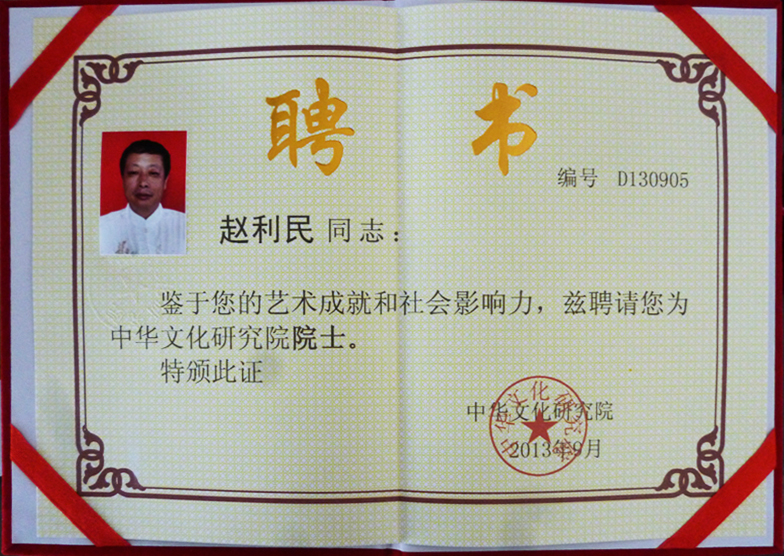 聘书
编号 D130905
赵利民同志：
鉴于您的艺术成就和社会影响力，兹聘请您为
中华文化研究院院士。
特颁此证
中华文化研究院
2013年9月
中华文化研究院